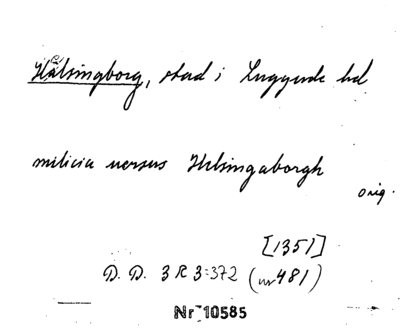 Hälsingborg, stad i Luggude hd
milicia versus Helsingaborgh
orig.
[1351]
D. D. 3 R 3:372 (nr 481)
Nr 10585